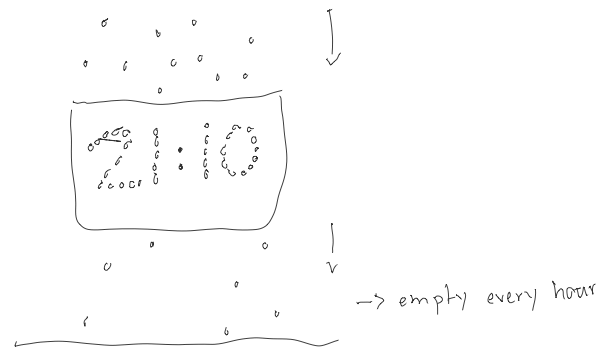 21:10
→ empty every hour